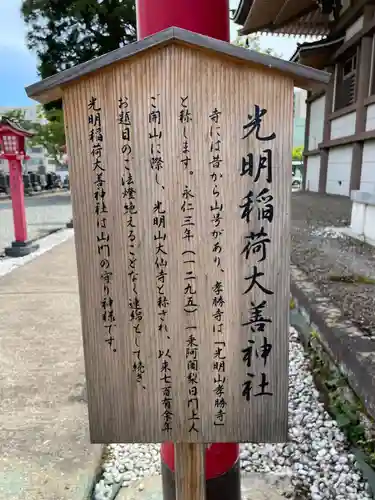 光明稲荷大善神社
寺には昔から山号があり、孝勝寺は「光明山孝勝寺」
と称します。永仁三年(一二九五)一乗阿闍梨日門上人
ご開山に際し、光明山大仙寺と称され、以来七百有余年
お題目のご法燈絶えることなく連綿として続き、
光明稲荷大善神は山門の守り神様です。